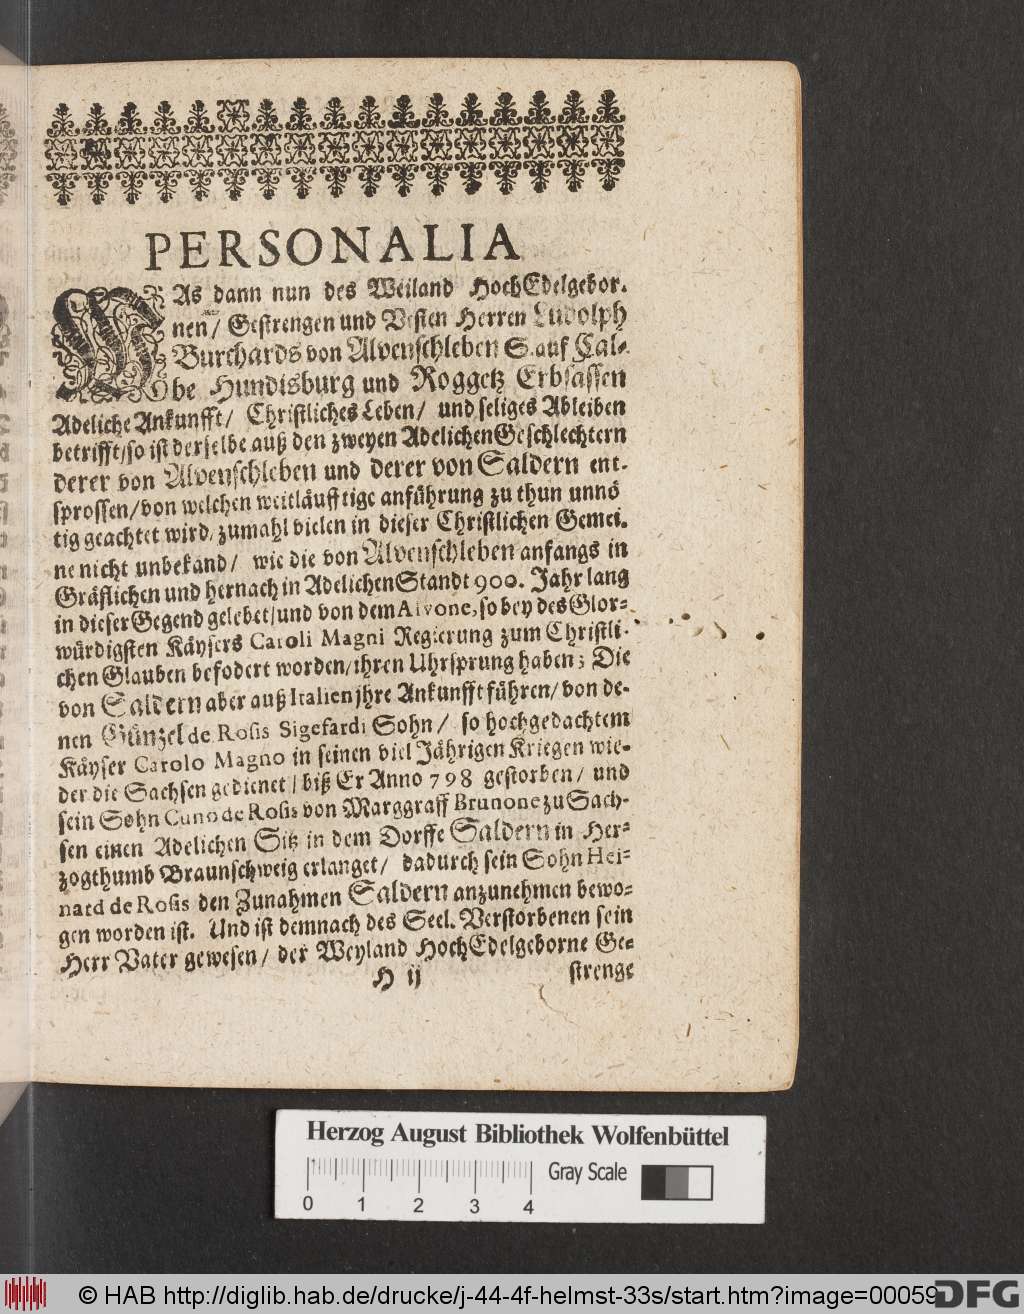 PERSONALIA
WAs dann nun des Weiland HochEdelgebor-
nen / Gestrengen und Vesten Herren Ludolph
Burchards von Alvenschleben S. auf Cal-
be Hundisburg und Roggetz Erbsassen
Adeliche Ankunfft / Christliches Leben / und seliges Ableiben
betrifft / so ist derselbe auß den zweyen Adelichen Geschlechtern
derer von Alvenschleben und derer von Saldern ent-
sprossen / von welchen weitläufftige anführung zu thun unnö
tig geachtet wird / zumahl vielen in dieser Christlichen Gemei-
ne nicht unbekand / wie die von Alvenschleben anfangs in
Gräflichen und hernach in Adelichen Standt 900. Jahr lang
in dieser Gegend gelebet / und von dem Alvone, so bey des Glor-
würdigsten Käysers Caroli Magni Regierung zum Christli-
chen Glauben befodert worden / ihren Uhrsprung haben; Die
von Saldern aber auß Italien jhre Ankunfft führen / von de-
nen Günzel de Rosis Sigefardi Sohn / so hochgedachtem
Käyser Carolo Magno in seinen viel Jährigen Kriegen wie-
der die Sachsen gedienet / biß Er Anno 798 gestorben / und
sein Sohn Cuno de Rosis von Marggraff Brunone zu Sach-
sen einen Adelichen Sitz in dem Dorffe Saldern in Her-
zogthumb Braunschweig erlanget / dadurch sein Sohn Hei-
nard de Rosis den Zunahmen Saldern anzunehmen bewo-
gen worden ist. Und ist demnach des Seel. Verstorbenen sein
Herr Vater gewesen / der Weyland HochEdelgeborne Ge-
H ij strenge
Herzog August Bibliothek Wolfenbüttel
Gray Scale
0 1 2 3 4
© HAB http://diglib.hab.de/drucke/j-44-4f-helmst-33s/start.htm?image=00059
DFG